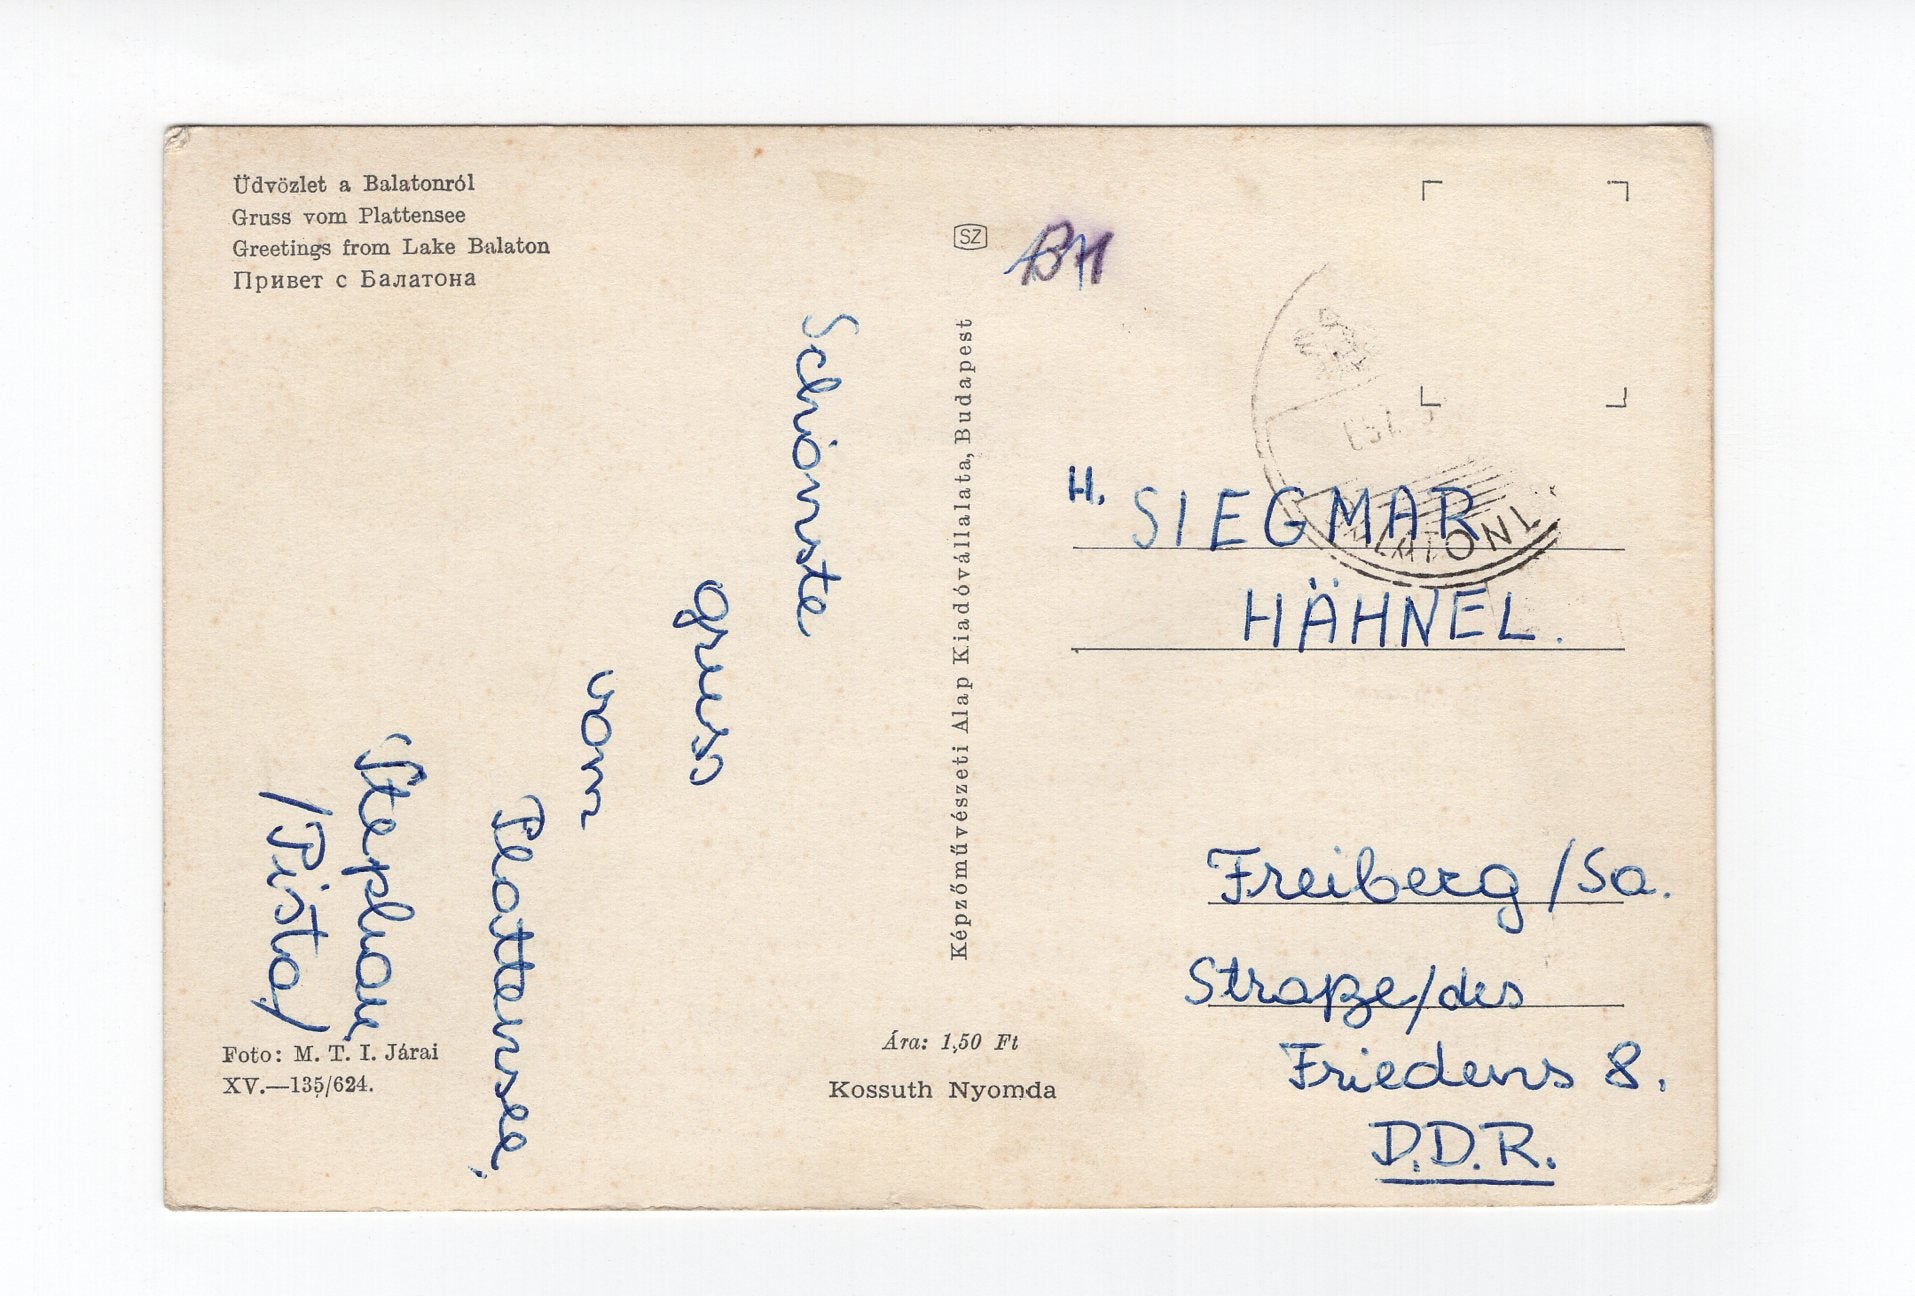 Üdvözlet a Balatonról
Gruss vom Plattensee
Greetings from Lake Balaton
Привет с Балатона
Schönste
gruss
vom
Plattensee,
Stephan
/Pista/
Foto: M. T. I. Járai
XV.—135/624.
SZ
Képzőművészeti Alap Kiadóvállalata, Budapest
Ára: 1,50 Ft
Kossuth Nyomda
BM
H. SIEGMAR
HÄHNEL.
Freiberg /Sa.
Straße/des
Friedens 8.
D.D.R.